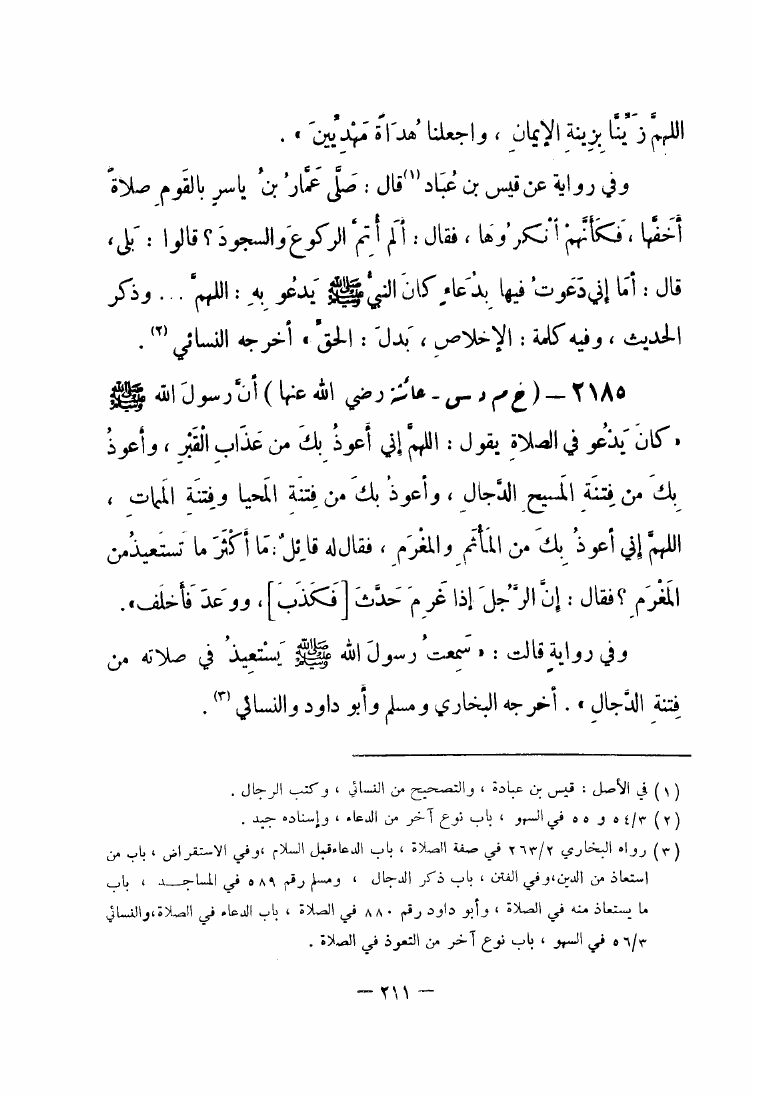 اللهمَّ زَيِّنَّا بِزِينةِ الإيمانِ ، واجعلنا هُدَاةً مَهْدِيِّينَ » .
وفي رواية عن قيس بن عُبَاد (١) قال : صَلَّى عَمَّارُ بنُ ياسرٍ بالقَومِ صلاةً
أَخَفَّها ، فَكَأَنَّهمْ أَنْكَرُوهَا ، فقال : أَلم أُتِمَّ الركوعَ والسجودَ ؟ قالوا : بَلى ،
قال : أمَا إِني دَعَوتُ فيها بِدُعَاءٍ كانَ النبيُّ ﷺ يَدعُو بِهِ : اللهمَّ ... وذكر
الحديث ، وفيه كلمة : الإخلاصِ ، بَدلَ : الحقِّ » أخرجه النسائي (٢) .
٢١٨٥ – (خ م د س - عائشة رضي الله عنها) أنَّ رسولَ الله ﷺ
« كانَ يَدْعُو في الصلاةِ يقول : اللهمَّ إني أعوذُ بِكَ من عَذَابِ الْقَبْرِ ، وأعوذُ
بِكَ من فِتنَةِ المَسيحِ الدَّجالِ ، وأعوذُ بكَ من فِتنَةِ المَحيا وفِتنَةِ المَماتِ ،
اللهمَّ إني أعوذُ بِكَ من المَأْثَمِ والمَغْرَمِ ، فقال له قائِلٌ : مَا أَكْثَرَ ما تَستَعيذُ من
المَغْرَمِ ؟ فقال : إنَّ الرَّجُلَ إذا غَرِمَ حَدَّثَ [فَكَذَبَ] ، ووعَدَ فَأَخلَف » .
وفي روايةٍ قالت : « سَمِعتُ رسولَ الله ﷺ يَسْتَعِيذُ في صلاته من
فِتنةِ الدَّجالِ » . أخرجه البخاري ومسلم وأبو داود والنسائي (٣) .
(١) في الأصل : قيس بن عبادة ، والتصحيح من النسائي ، وكتب الرجال .
(٢) ٥٤/٣ و ٥٥ في السهو ، باب نوع آخر من الدعاء ، وإسناده جيد .
(٣) رواه البخاري ٢٦٣/٢ في صفة الصلاة ، باب الدعاء قبل السلام ، وفي الاستقراض ، باب من
استعاذ من الدين ، وفي الفتن ، باب ذكر الدجال ، ومسلم رقم ٥٨٩ في المساجد ، باب
ما يستعاذ منه في الصلاة ، وأبو داود رقم ٨٨٠ في الصلاة ، باب الدعاء في الصلاة ، والنسائي
٥٦/٣ في السهو ، باب نوع آخر من التعوذ في الصلاة .
– ٢١١ –